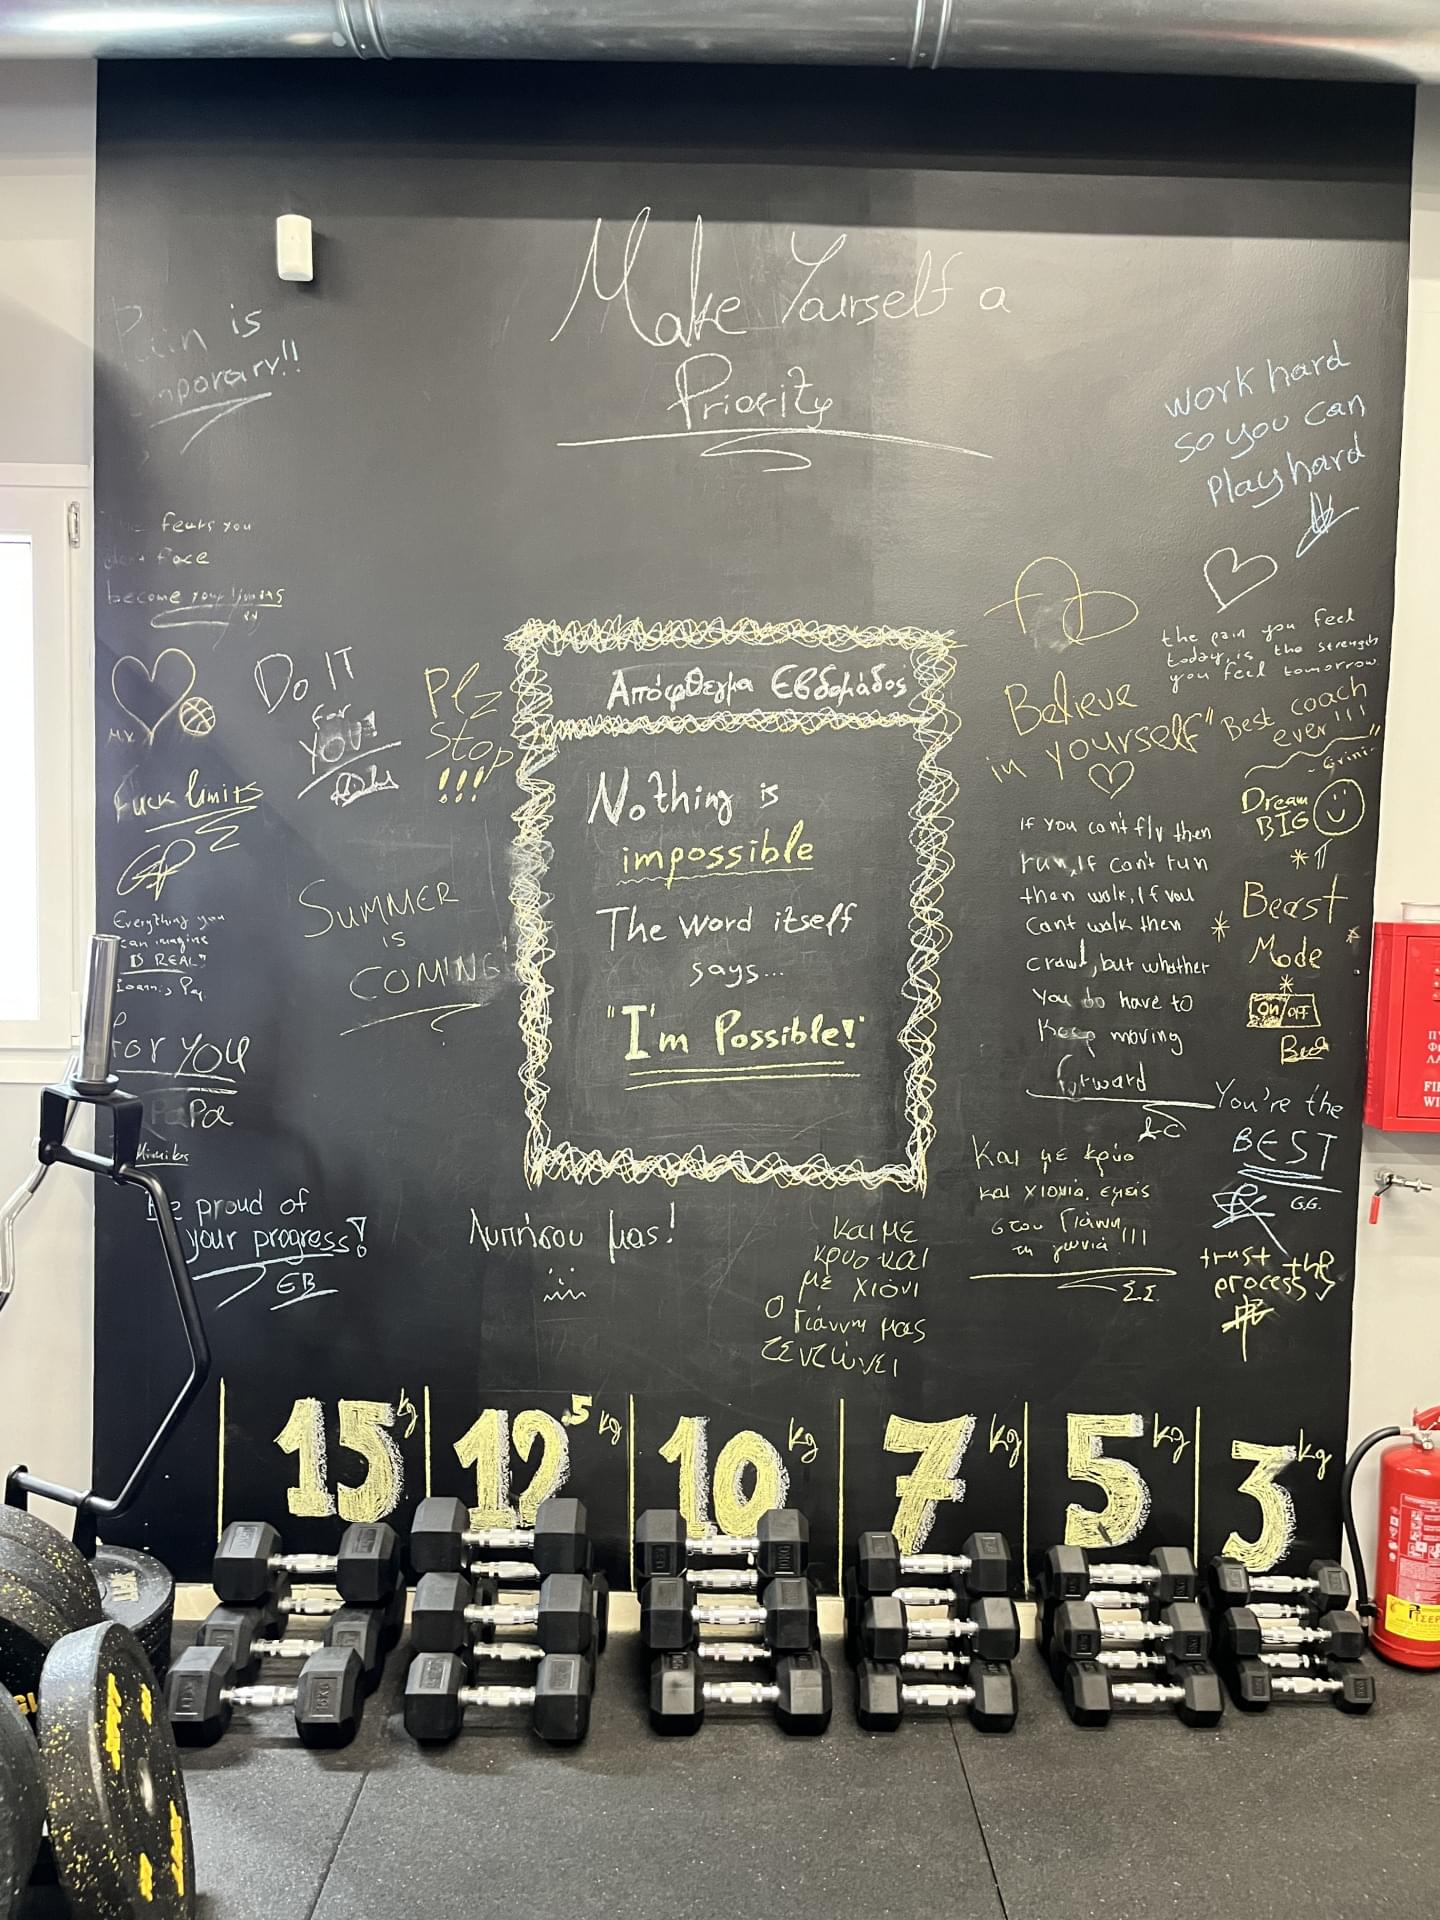 Make Yourself a
Priority
Pain is
temporary!!
work hard
so you can
Play hard
fears you
don't face
become your limits
the pain you feel
today, is the strength
you feel tomorrow
Do IT
For
YOU!
Plz
stop
!!!
Fuck limits
GP
Everything you
can imagine
IS REAL"
Ioannis Pap.
For YOU
PaPa
Mimikos
Be proud of
your progress!
ΕΒ
SUMMER
IS
COMING
Απόφθεγμα Εβδομάδος
Nothing is
impossible
The word itself
says...
"I'm Possible!"
Λυπήσου μας!
Believe
in yourself"
If you can't fly then
run, If can't run
then walk, If you
Cant walk then
crawl, but whather
you do have to
Keep moving
forward
Best coach
ever!!!
Dream
BIG
Beast
Mode
On/OFF
You're the
BEST
G.G.
trust the
process
Και με κρύο
και χιόνια, εμείς
στου Γιάννη
τη γωνιά!!!
Σ.Σ.
και με
κρυο και
με χιόνι
Ο Γιάννη μας
ζεντώνει
15 kg
12.5 kg
10 kg
7 kg
5 kg
3 kg